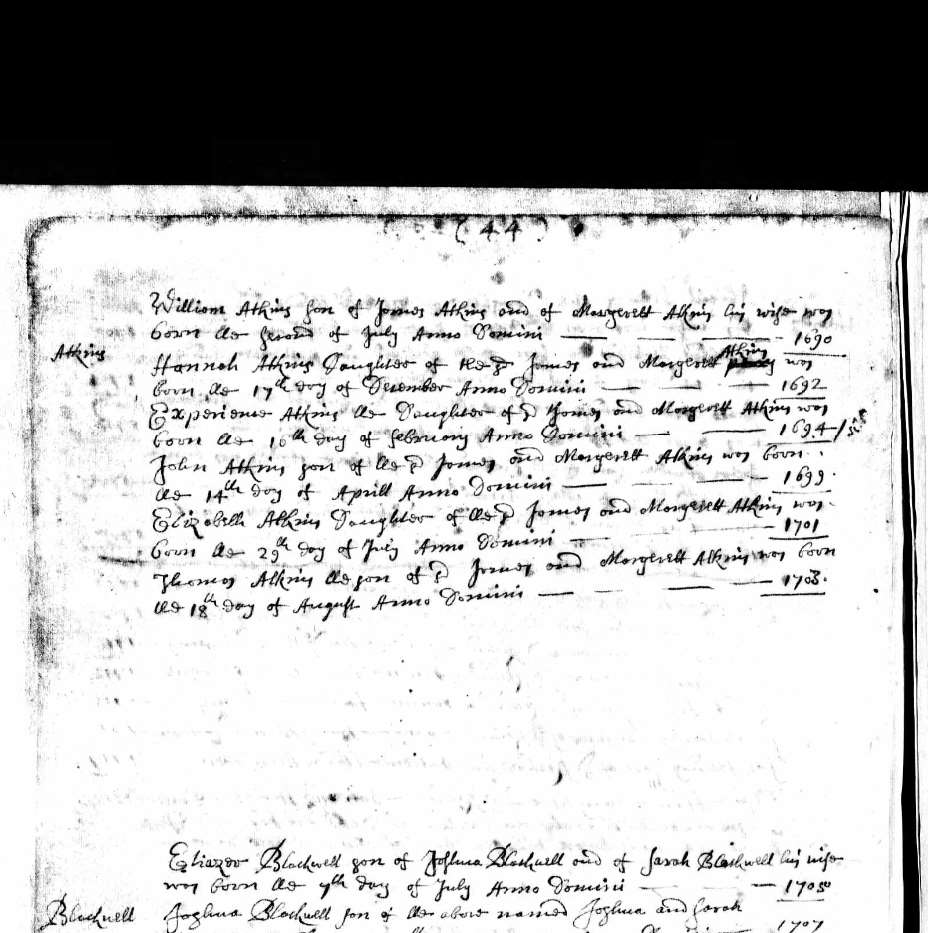 ( 44 )
William Atkins son of James Atkins and of Margerett Atkins his wife was
born the second of July Anno Domini 1690
Atkins
Hannah Atkins Daughter of the sd James and Margerett Atkins was
born the 17th day of December Anno Domini 1692
Experience Atkins the Daughter of sd James and Margerett Atkins was
born the 16th day of february Anno Domini 1694/5
John Atkins son of the sd James and Margerett Atkins was born
the 14th day of Aprill Anno Domini 1699
Elizabeth Atkins Daughter of the sd James and Margerett Atkins was
born the 29th day of July Anno Domini 1701
Thomas Atkins the son of sd James and Margerett Atkins was born
the 18th day of August Anno Domini 1703
Eliazer Blackwell son of Joshua Blackwell and of Sarah Blackwell his wife
was born the 7th day of July Anno Domini 1705
Blackwell
Joshua Blackwell son of the above named Joshua and Sarah
1707